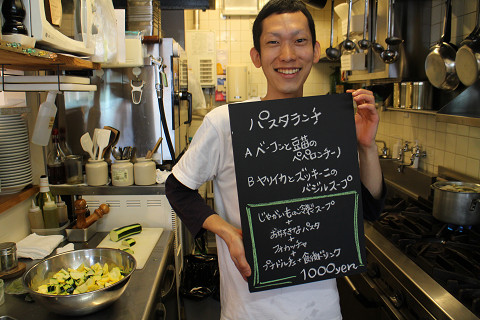 パスタランチ
A ベーコンと豆苗の
ペペロンチーノ
B ヤリイカとズッキーニの
バジルスープ
じゃがいもの冷製スープ
+
お好きなパスタ
+
フォカッチャ
+
プチドルチェ+食後ドリンク
1000yen